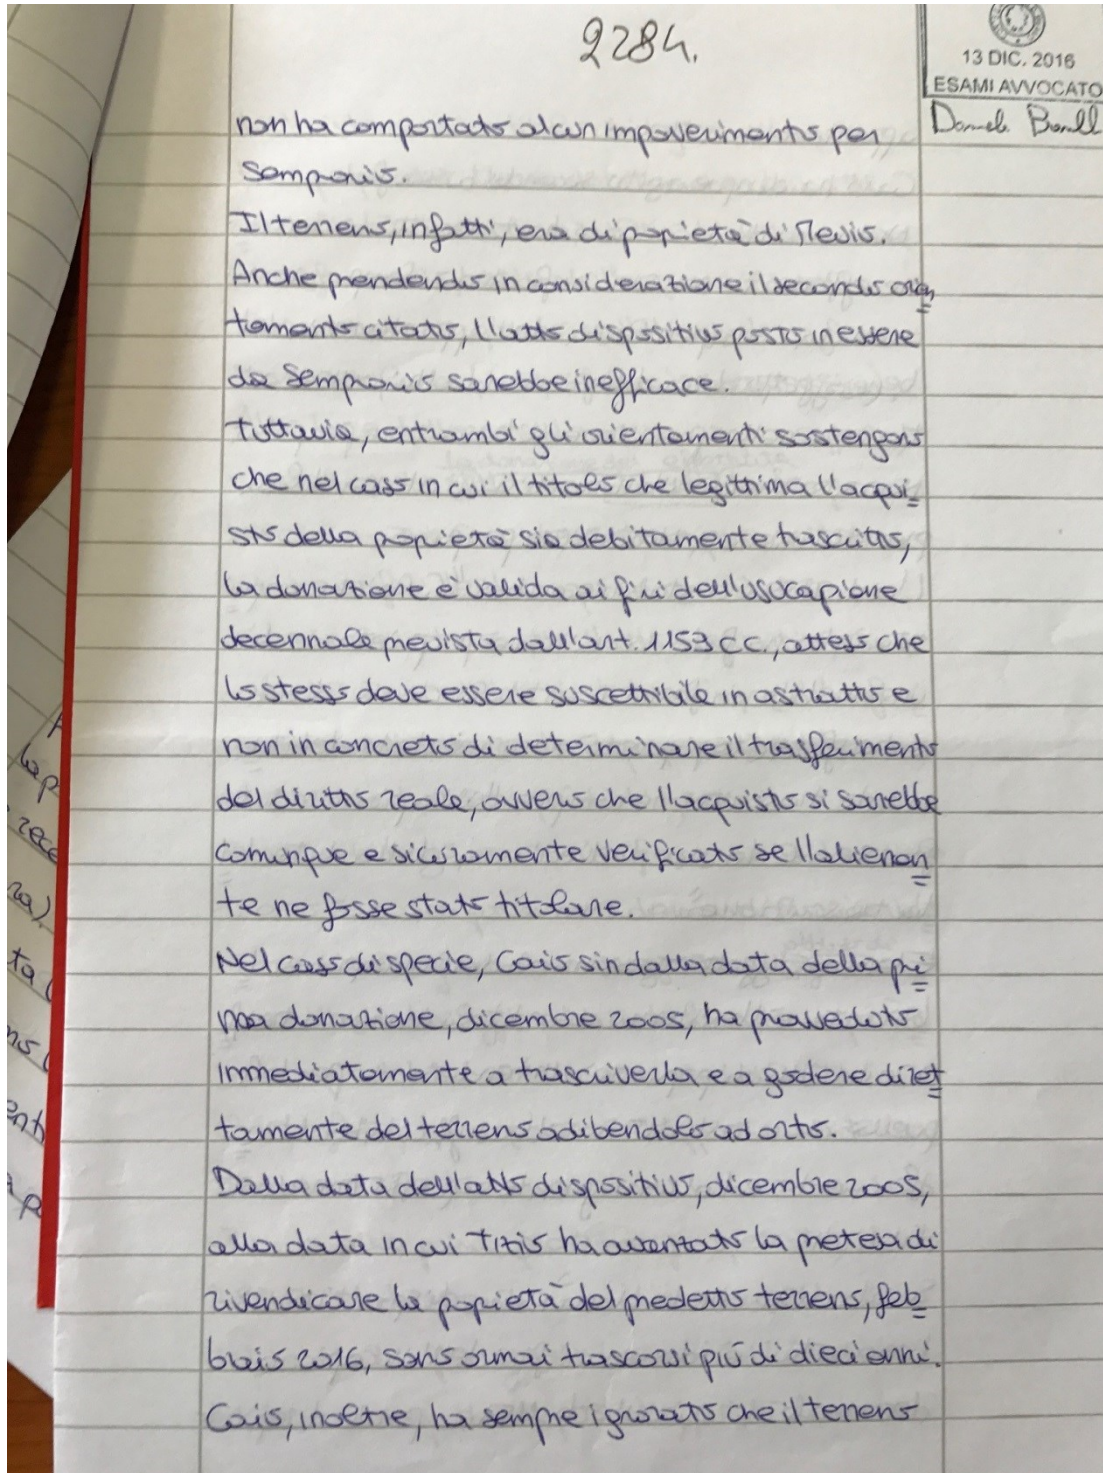 2284.
13 DIC. 2016
ESAMI AVVOCATO
non ha comportato alcun impoverimento per
Sempronio.
Il terreno, infatti, era di propietà di Mevio.
Anche prendendo in considerazione il secondo orien=
tamento citato, l'atto dispositivo posto in essere
da Sempronio sarebbe inefficace.
Tuttavia, entrambi gli orientamenti sostengono
che nel caso in cui il titolo che legittima l'acqui=
sto della propietà sia debitamente trascritto,
la donazione è valida ai fini dell'usucapione
decennale prevista dall'art. 1159 c.c., atteso che
lo stesso deve essere suscettibile in astratto e
non in concreto di determinare il trasferimento
del diritto reale, ovvero che l'acquisto si sarebbe
comunque e sicuramente verificato se l'alienan=
te ne fosse stato titolare.
Nel caso di specie, Caio sin dalla data della pri=
ma donazione, dicembre 2005, ha provveduto
immediatamente a trascriverla e a godere diret=
tamente del terreno adibendolo ad orto.
Dalla data dell'atto dispositivo, dicembre 2005,
alla data in cui Tizio ha avanzato la pretesa di
rivendicare la propietà del predetto terreno, feb=
braio 2016, sono ormai trascorsi più di dieci anni.
Caio, inoltre, ha sempre ignorato che il terreno